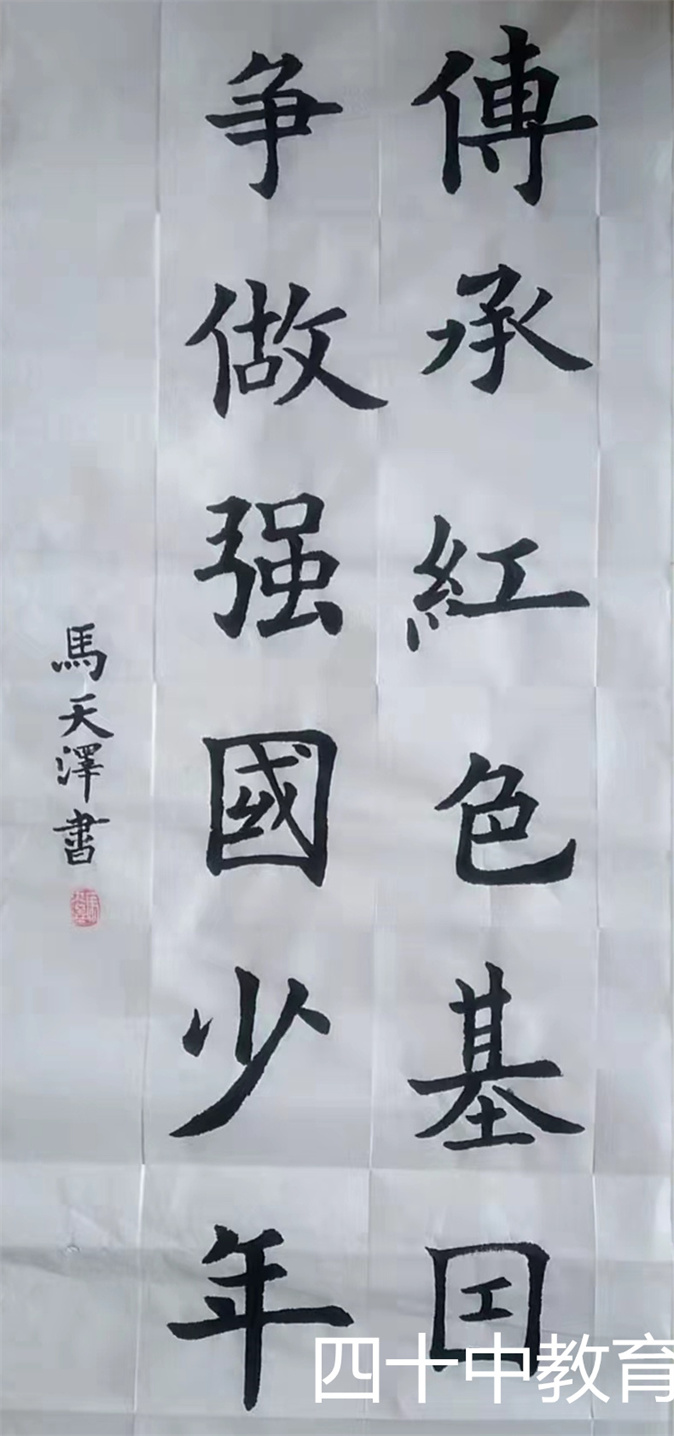 傳承紅色基因
争做强國少年
馬天澤書
四十中教育